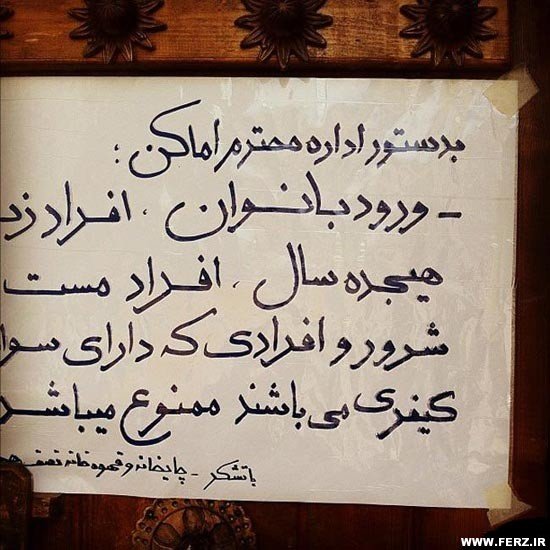 بدستور اداره محترم اماکن :
- ورود بانوان ، افراد زیر
هیجده سال ، افراد مست
شرور و افرادی که دارای سوا
کیفری می باشند ممنوع میباشد
با تشکر - چایخانه و قهوه خانه
WWW.FERZ.IR